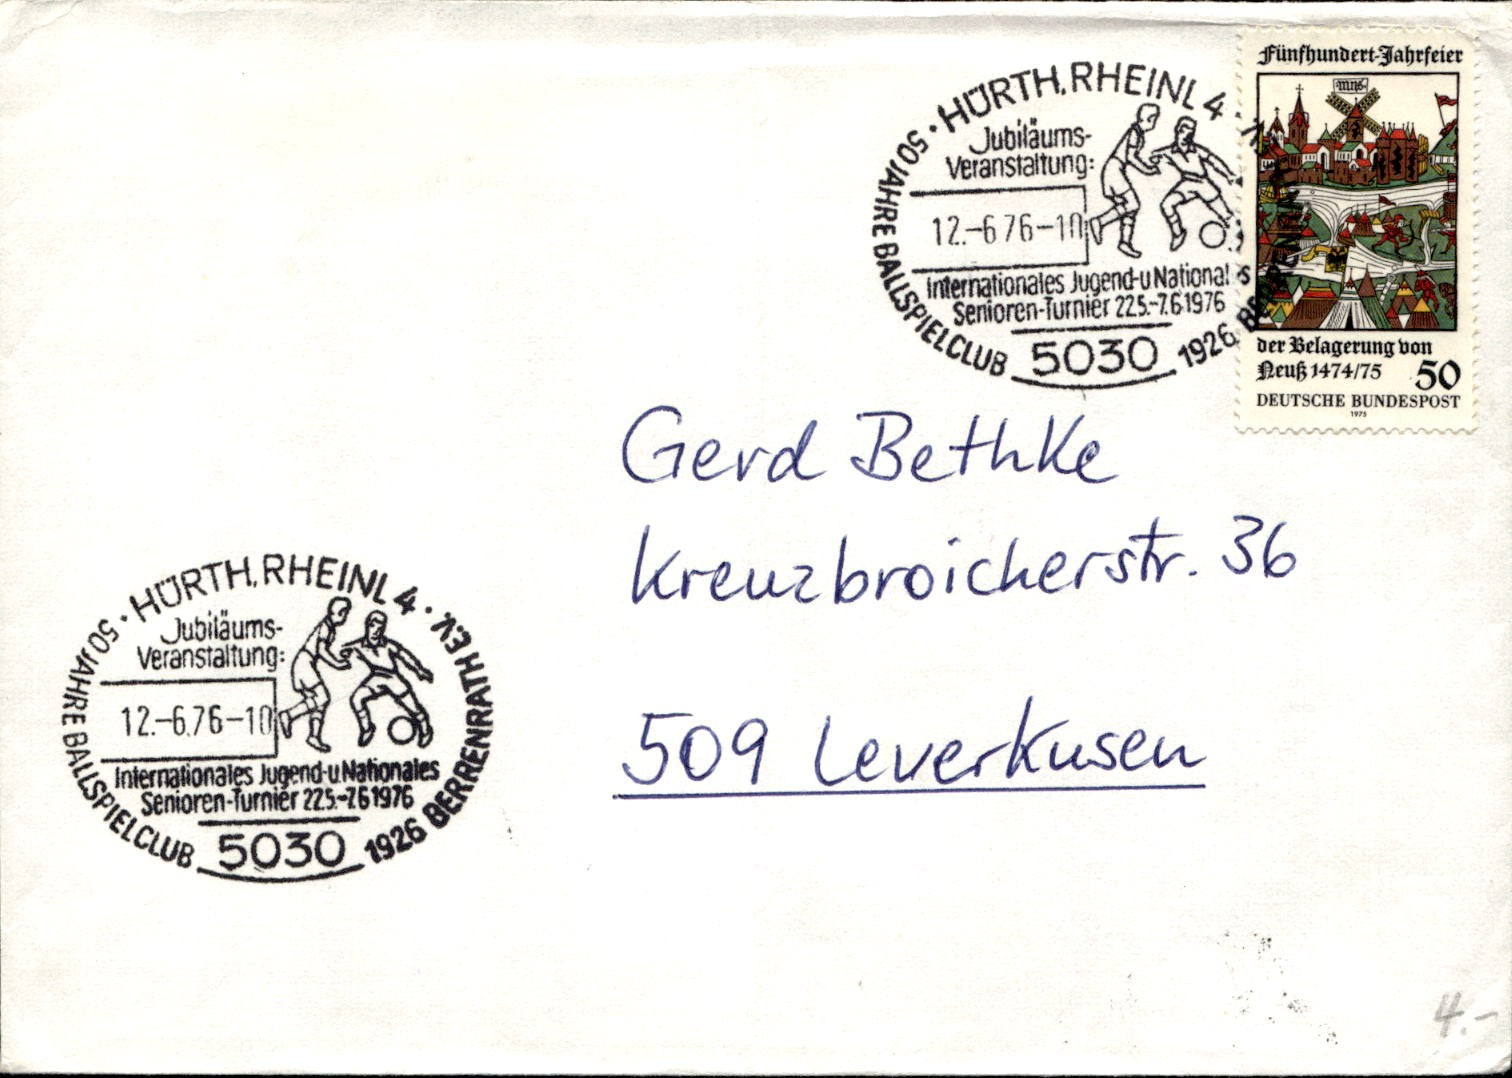 HÜRTH, RHEINL 4
50 JAHRE BALLSPIELCLUB 1926 BERRENRATH E.V.
Jubiläums-
Veranstaltung:
12.-6.76-10
Internationales Jugend-u Nationales
Senioren-Turnier 22.5.-7.6.1976
5030
Fünfhundert-Jahrfeier
der Belagerung von
Neuß 1474/75 50
DEUTSCHE BUNDESPOST
1975
Gerd Bethke
Kreuzbroicherstr. 36
509 Leverkusen
HÜRTH, RHEINL 4
50 JAHRE BALLSPIELCLUB 1926 BERRENRATH E.V.
Jubiläums-
Veranstaltung:
12.-6.76-10
Internationales Jugend-u Nationales
Senioren-Turnier 22.5.-7.6.1976
5030
4.-